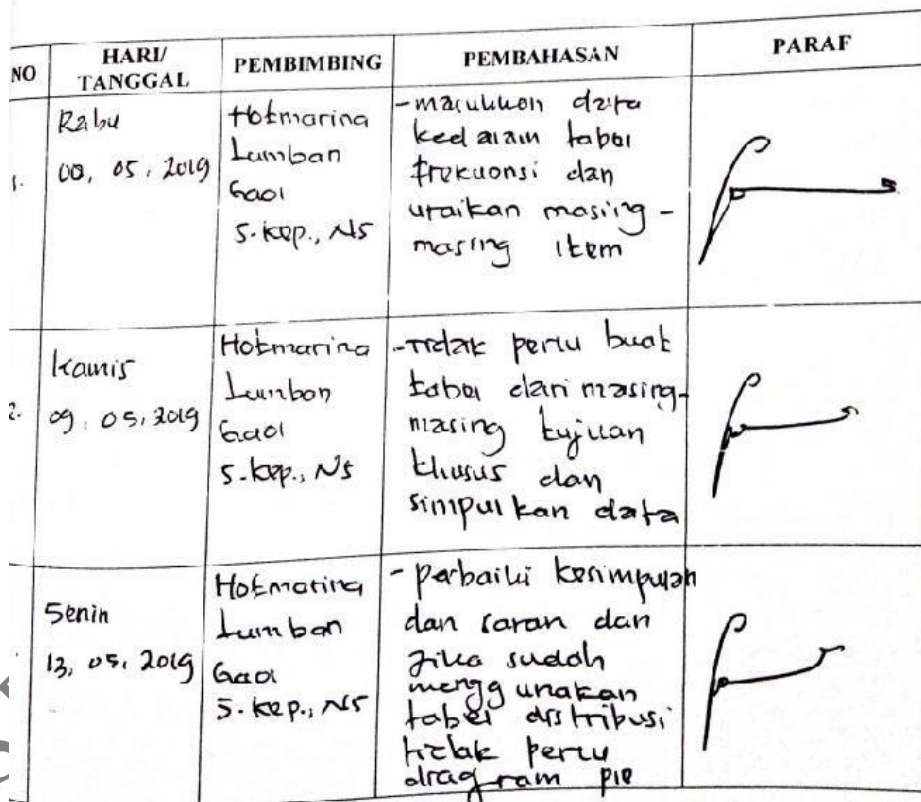 NO HARI/ TANGGAL PEMBIMBING PEMBAHASAN PARAF
1.
Rabu
08, 05, 2019
Hotmarina
Lumban
Gaol
S.Kep., NS
- masukkan data
kedalam tabel
frekuensi dan
uraikan masing -
masing item
2.
Kamis
09, 05, 2019
Hotmarina
Lumban
Gaol
S.Kep., NS
- Tidak perlu buat
tabel dari masing-
masing tujuan
khusus dan
simpulkan data
Senin
13, 05, 2019
Hotmarina
Lumban
Gaol
S.Kep., NS
- perbaiki kesimpulan
dan saran dan
jika sudah
menggunakan
tabel distribusi
tidak perlu
diagram pie